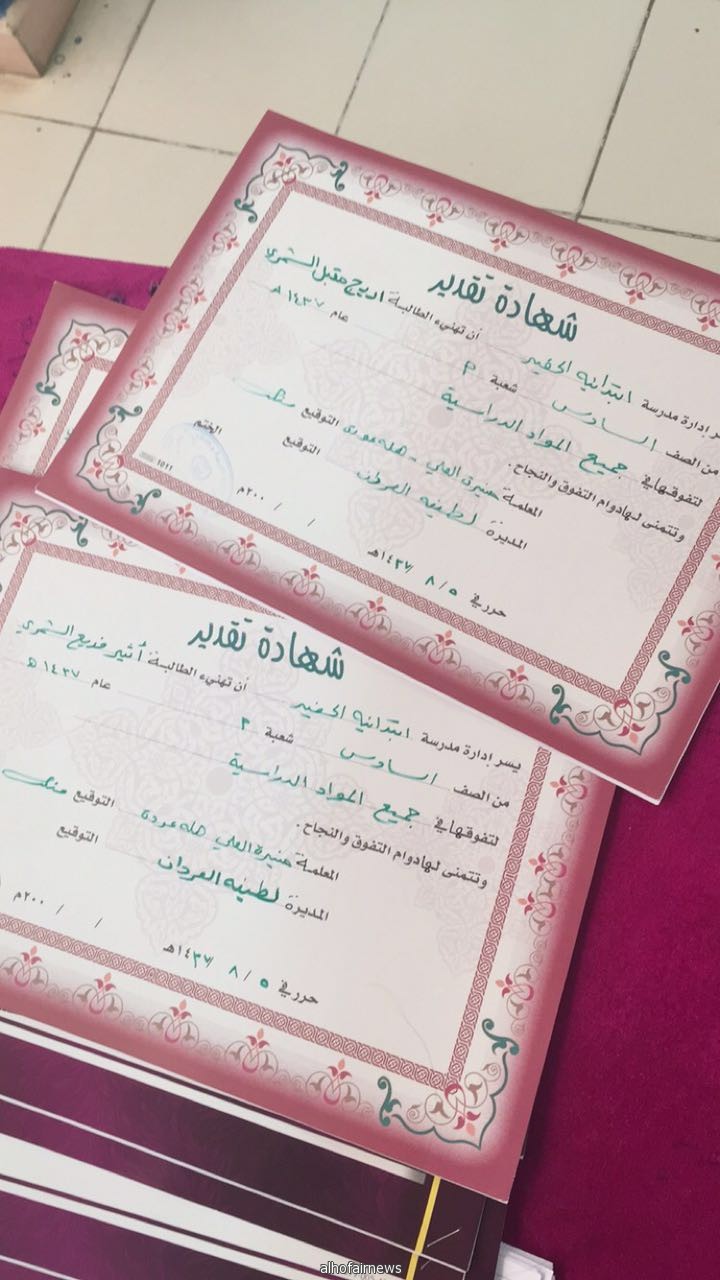 شهادة تقدير
يسر إدارة مدرسة ابتدائية الحفير أن تهنيء الطالبة اريج مقبل الشمري
من الصف السادس شعبة ٢ عام ١٤٣٧ هـ
لتفوقها في جميع المواد الدراسية
وتتمنى لها دوام التفوق والنجاح.
المعلمة منيرة العلي - هله عودة التوقيع
المديرة لطيفه العردان التوقيع
الختم
حرر في ٥ / ٨ / ١٤٣٧هـ / / ٢٠٠م
1011
شهادة تقدير
يسر إدارة مدرسة ابتدائية الحفير أن تهنيء الطالبة أثير فديع الشمري
من الصف السادس شعبة ٢ عام ١٤٣٧ هـ
لتفوقها في جميع المواد الدراسية
وتتمنى لها دوام التفوق والنجاح.
المعلمة منيرة العلي هله عودة التوقيع
المديرة لطيفه العردان التوقيع
حرر في ٥ / ٨ / ١٤٣٧هـ / / ٢٠٠م
alhofairnews